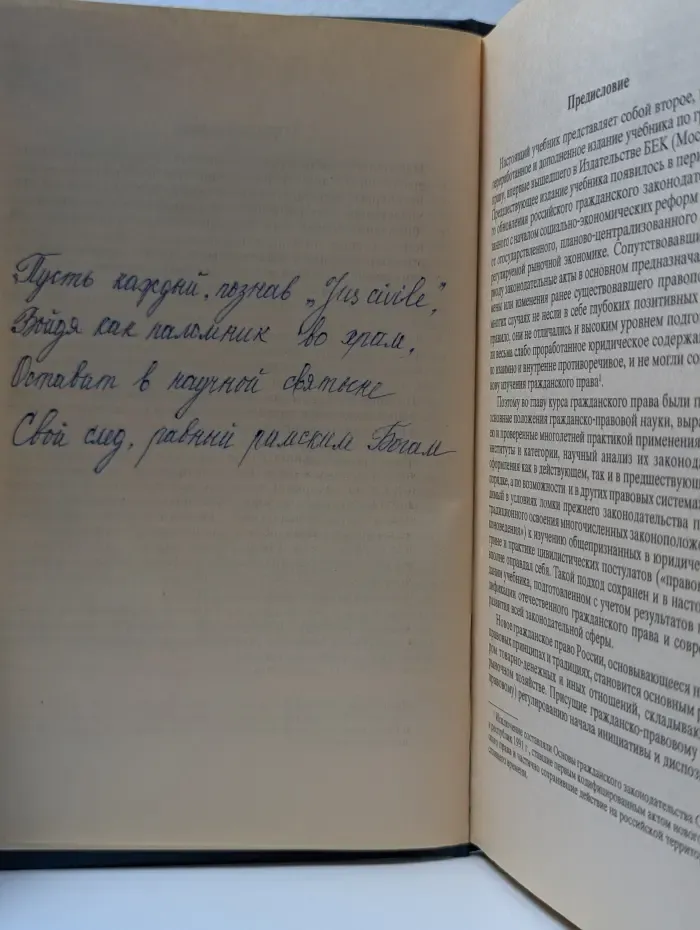 Пусть каждый, познав „Jus civile",
Войдя как паломник во храм,
Оставит в научной святыне
Свой след, равный римским Богам
Предисловие
Настоящий учебник представляет собой второе,
переработанное и дополненное издание учебника по
праву, впервые вышедшего в Издательстве БЕК
Предшествующее издание учебника появилось в
го обновления российского гражданского
занного с началом социально-экономических реформ
от огосударствленного, планово-централизованного
регулируемой рыночной экономике.
риоду законодательные акты в основном
мены или изменения ранее существовавшего
многих случаях не несли в себе глубоких позитивных
правило, они не отличались и высоким уровнем
ли весьма слабо проработанное юридическое
но взаимно и внутренне противоречивое, и не могли
нову изучения гражданского права¹.
Поэтому во главу курса гражданского права были
основные положения гражданско-правовой науки,
но и проверенные многолетней практикой применения
институты и категории, научный анализ их
оформления как в действующем, так и в
порядке, а по возможности и в других правовых
в условиях ломки прежнего законодательства
традиционного освоения многочисленных
к изучению общепризнанных в
и практике цивилистических постулатов
вполне оправдал себя. Такой подход сохранен и в
учебника, подготовленном с учетом результатов
отечественного гражданского права и
развития всей законодательной сферы.
Новое гражданское право России, основывающееся
правовых принципах и традициях, становится основным
ром товарно-денежных и иных отношений,
рыночном хозяйстве. Присущие гражданско-правовому
правовому) регулированию начала инициативы и
¹ Исключение составляли Основы гражданского законодательства
и республик 1991 г., ставшие первым кодифицированным актом
права и частично сохранившие действие на российской
времени.